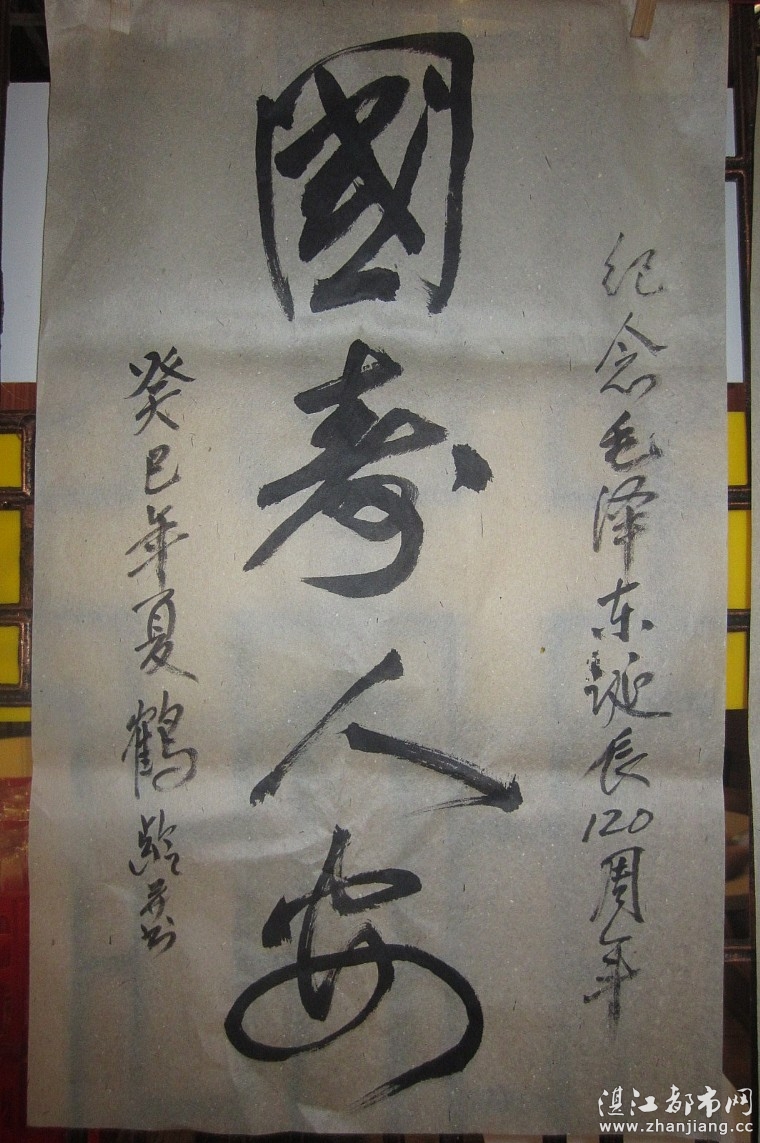 纪念毛泽东诞辰120周年
國寿人安
癸巳年夏鶴齡并书
湛江都市网
www.zhanjiang.cc